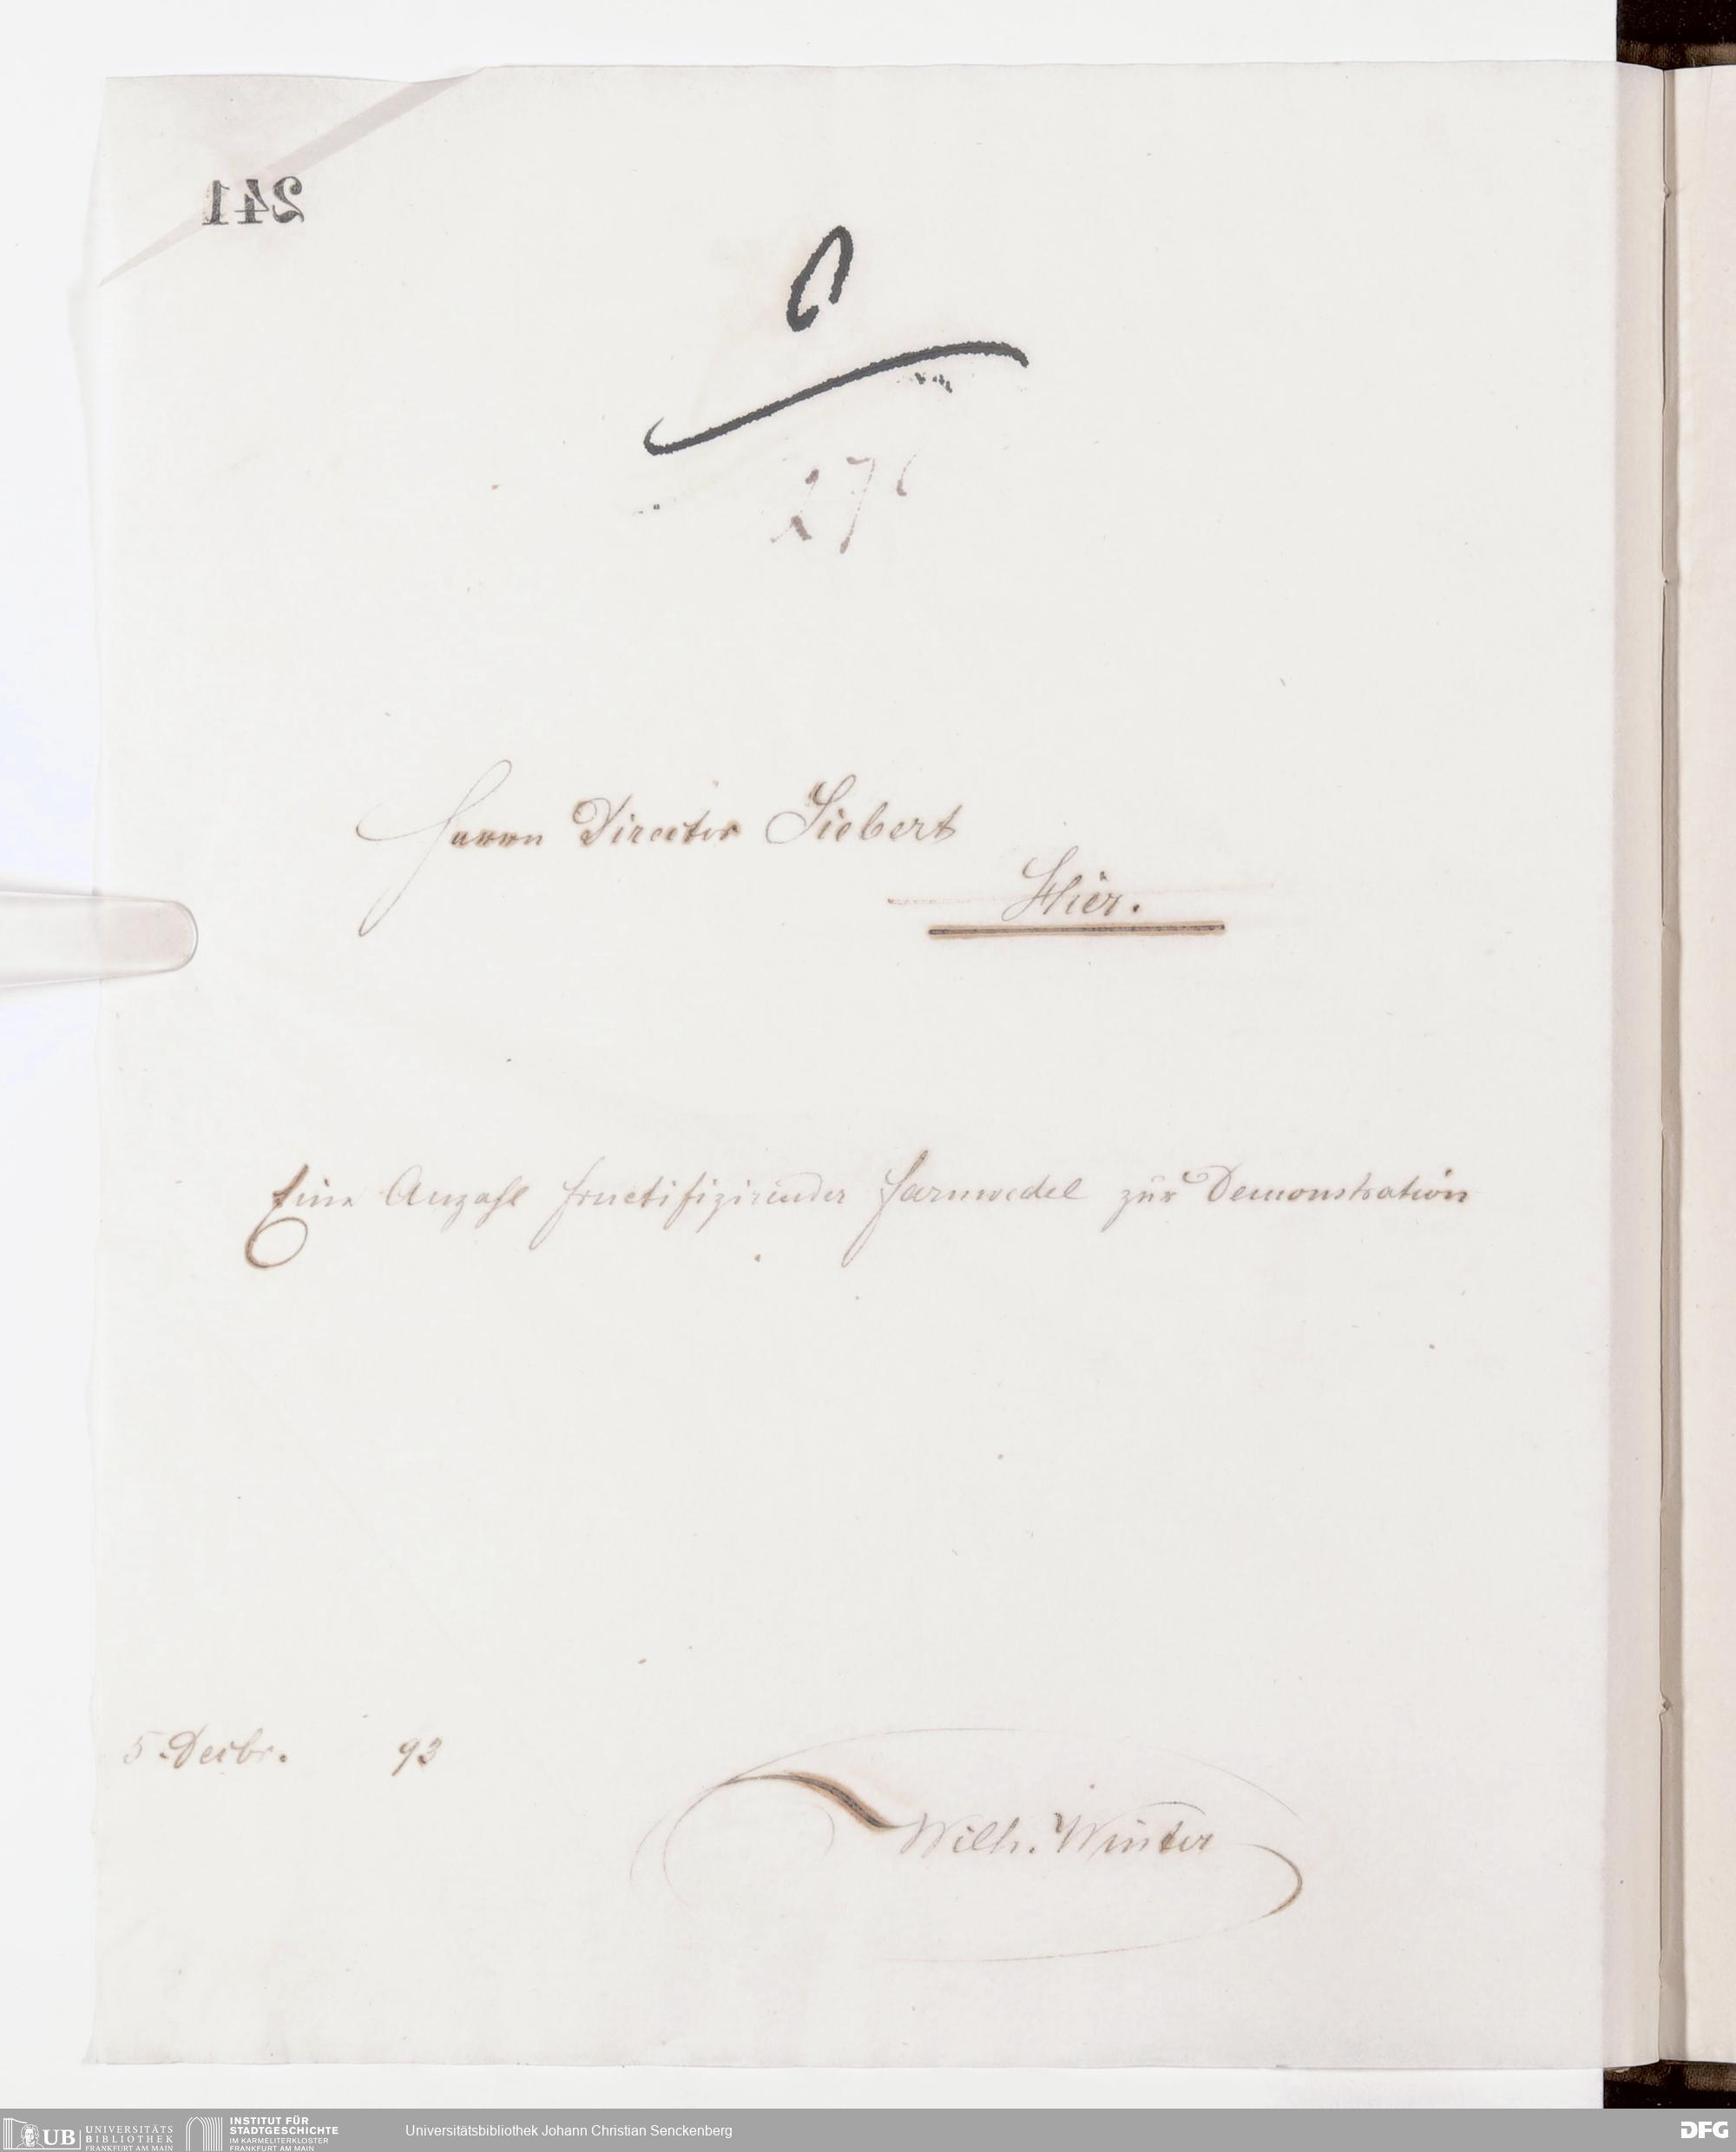 241
Herrn Director Siebert
Hier.
Eine Anzahl fructifizirender Farnwedel zur Demonstration
5. Decbr. 93
Wilh. Winter
UB UNIVERSITÄTS
BIBLIOTHEK
FRANKFURT AM MAIN
INSTITUT FÜR
STADTGESCHICHTE
IM KARMELITERKLOSTER
FRANKFURT AM MAIN
Universitätsbibliothek Johann Christian Senckenberg
DFG